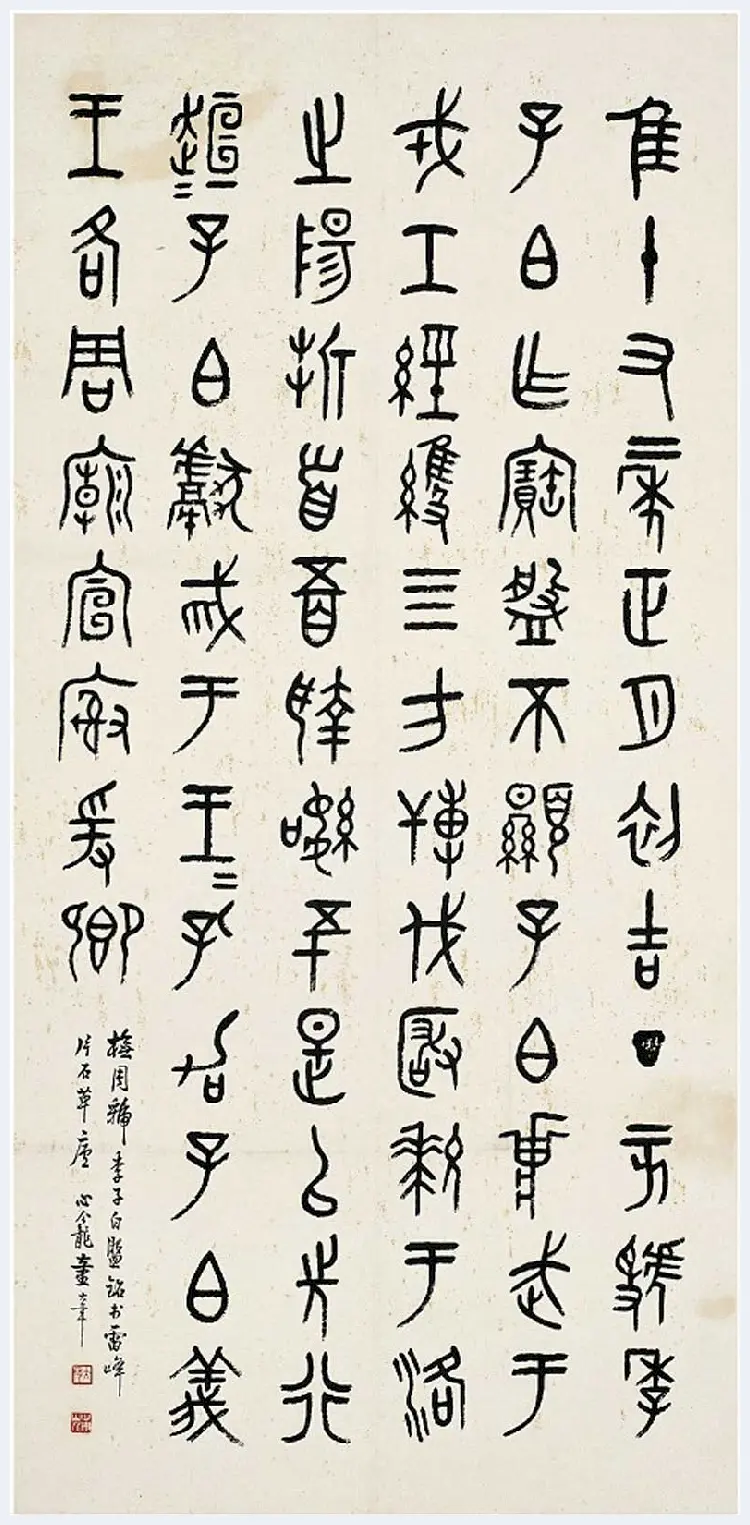 隹十又二年正月初吉丁亥虢季
子白乍寶盤不顯子白𤕌武于
戎工經維四方博伐厰𤞤于洛
之陽折首五百執訊五十是以先行
趄=子白獻馘于王=孔加子白義
王各周廟宣廚爰卿
橅周虢季子白盤銘於雷峰
片石草廬 心龕童大年